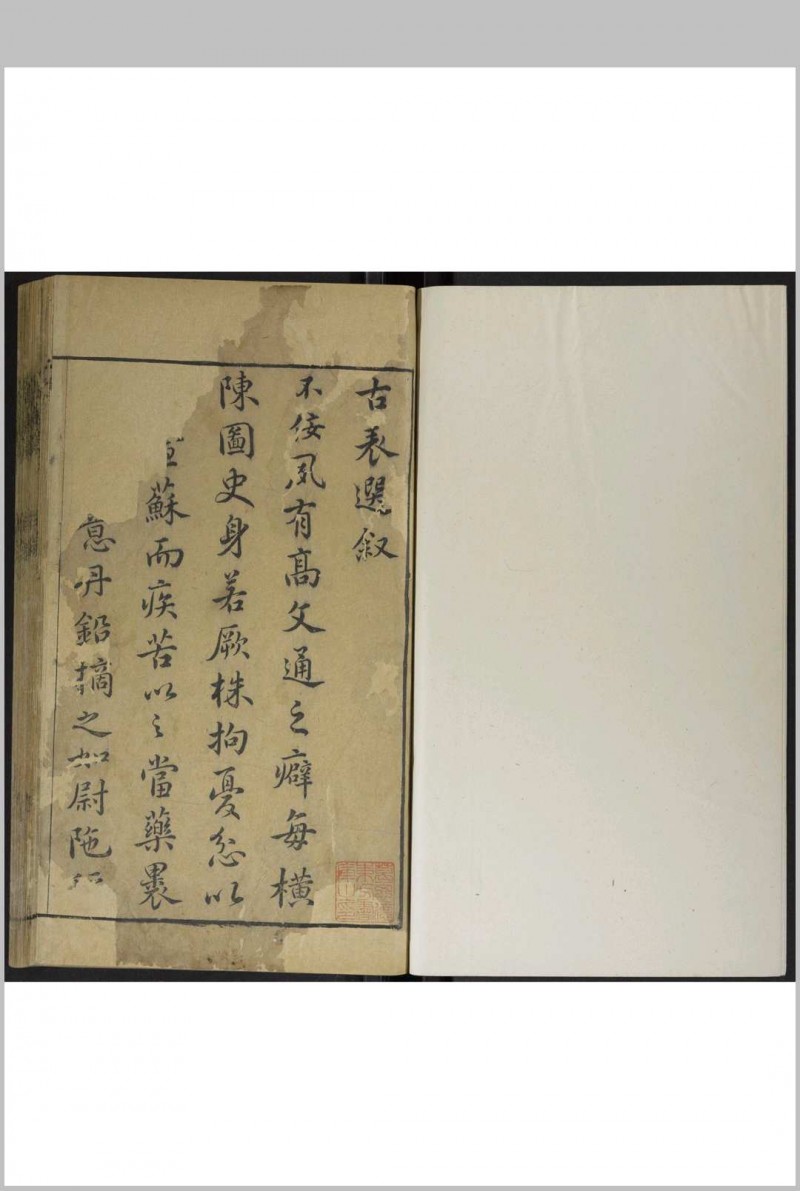 古表選叙
不佞夙有高文通之癖每橫
陳圖史身若厥株拘憂忿以
蘇而疾苦以之當藥裹
丹鉛摘之如尉陁